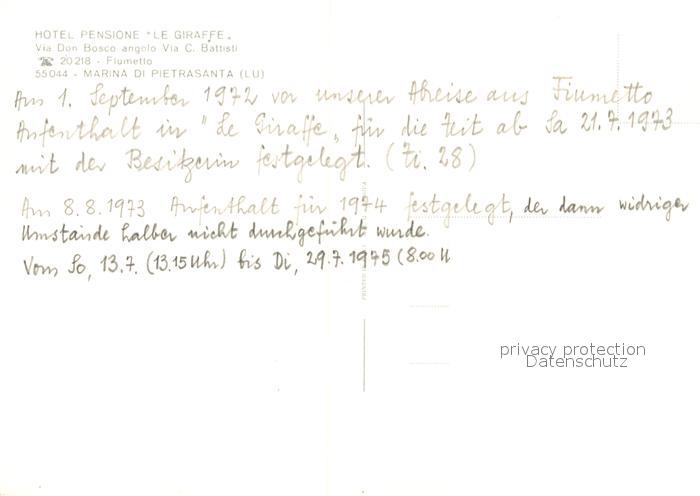 HOTEL PENSIONE "LE GIRAFFE„
Via Don Bosco angolo Via C. Battisti
☎ 20218 - Fiumetto
55044 - MARINA DI PIETRASANTA (LU)
Am 1. September 1972 vor unserer Abreise aus Fiumetto
Aufenthalt in "Le Giraffe„ für die Zeit ab Sa 21.7.1973
mit der Besitzerin festgelegt. (Zi. 28)
Am 8.8.1973 Aufenthalt für 1974 festgelegt, der dann widriger
Umstände halber nicht durchgeführt wurde.
Vom So, 13.7. (13.15 Uhr) bis Di, 29.7.1975 (8.00 U
privacy protection
Datenschutz